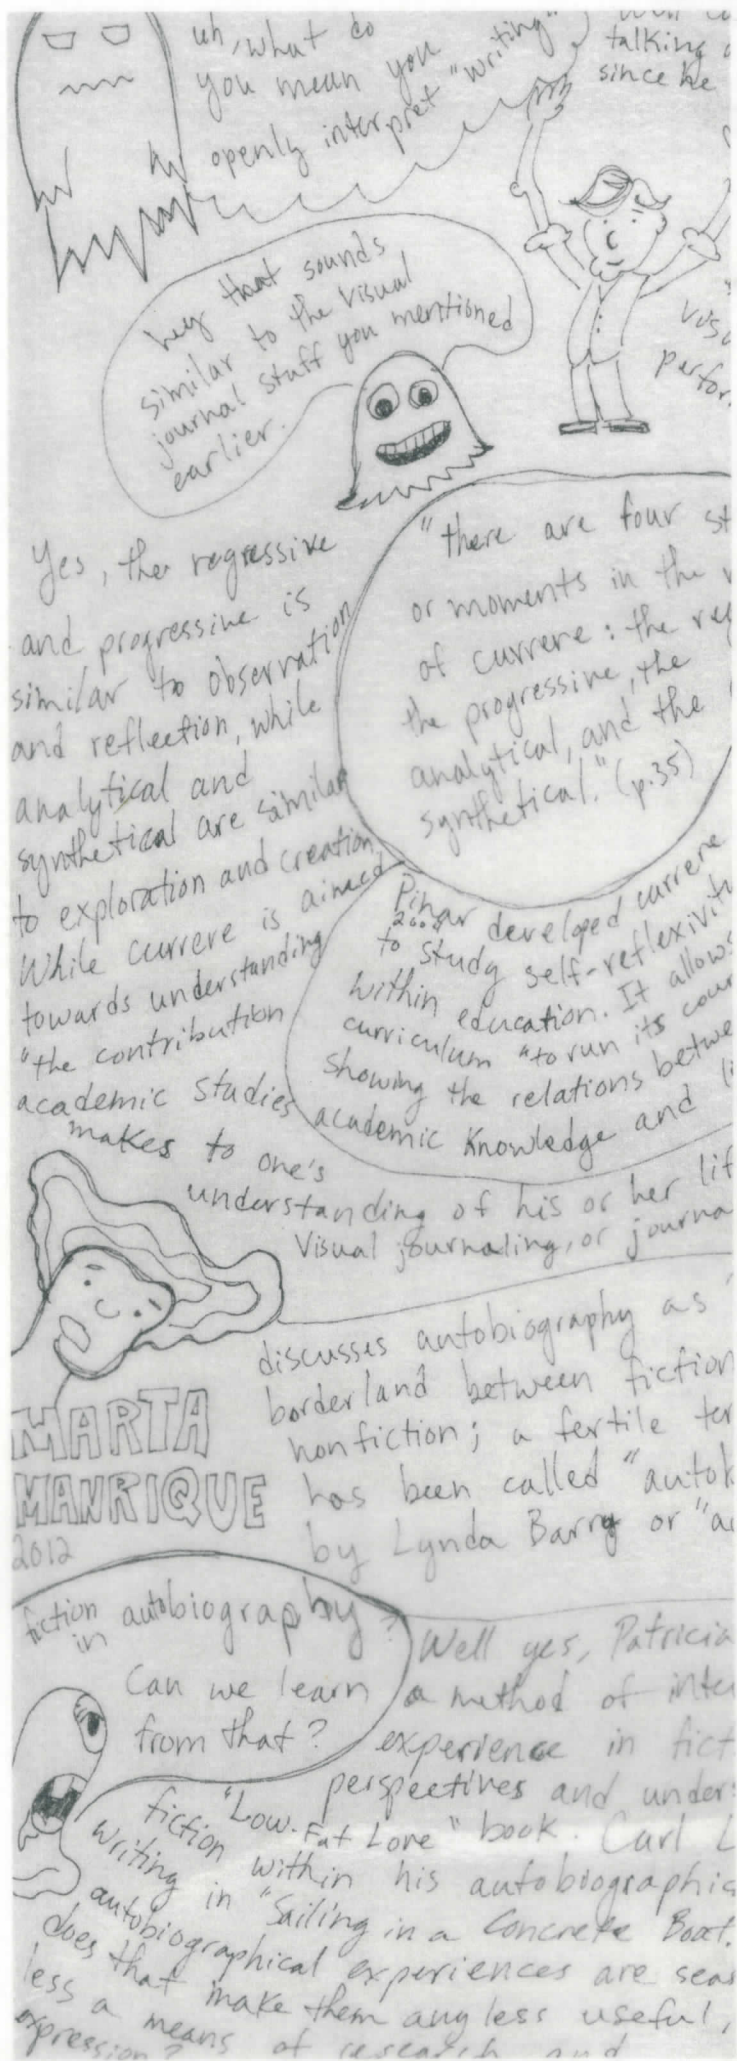 uh, what do
you mean you
openly interpret "writing"
talking
since he
hey that sounds
similar to the visual
journal stuff you mentioned
earlier.
perfor
"there are four st
or moments in the
of currere: the reg
the progressive, the
analytical, and the
synthetical." (p.35)
Yes, the regressive
and progressive is
similar to observation
and reflection, while
analytical and
synthetical are similar
to exploration and creation.
While currere is aimed
towards understanding
"the contribution
academic studies
makes to one's
understanding of his or her lif
Visual journaling, or journa
Pinar developed currere
2004
to study self-reflexivit
within education. It allows
curriculum "to run its cour
showing the relations betwe
academic knowledge and li
MARTA
MANRIQUE
2012
discusses autobiography as
borderland between fiction
nonfiction; a fertile ter
has been called "autob
by Lynda Barry or "au
fiction
in autobiography?
Can we learn
from that?
Well yes, Patricia
a method of inte
experience in fict
perspectives and under
fiction "Low-Fat Love" book. Carl L
writing within his autobiographic
in "Sailing in a Concrete Boat.
autobiographical experiences are sea
does that make them any less useful,
less a means of research and
expression?